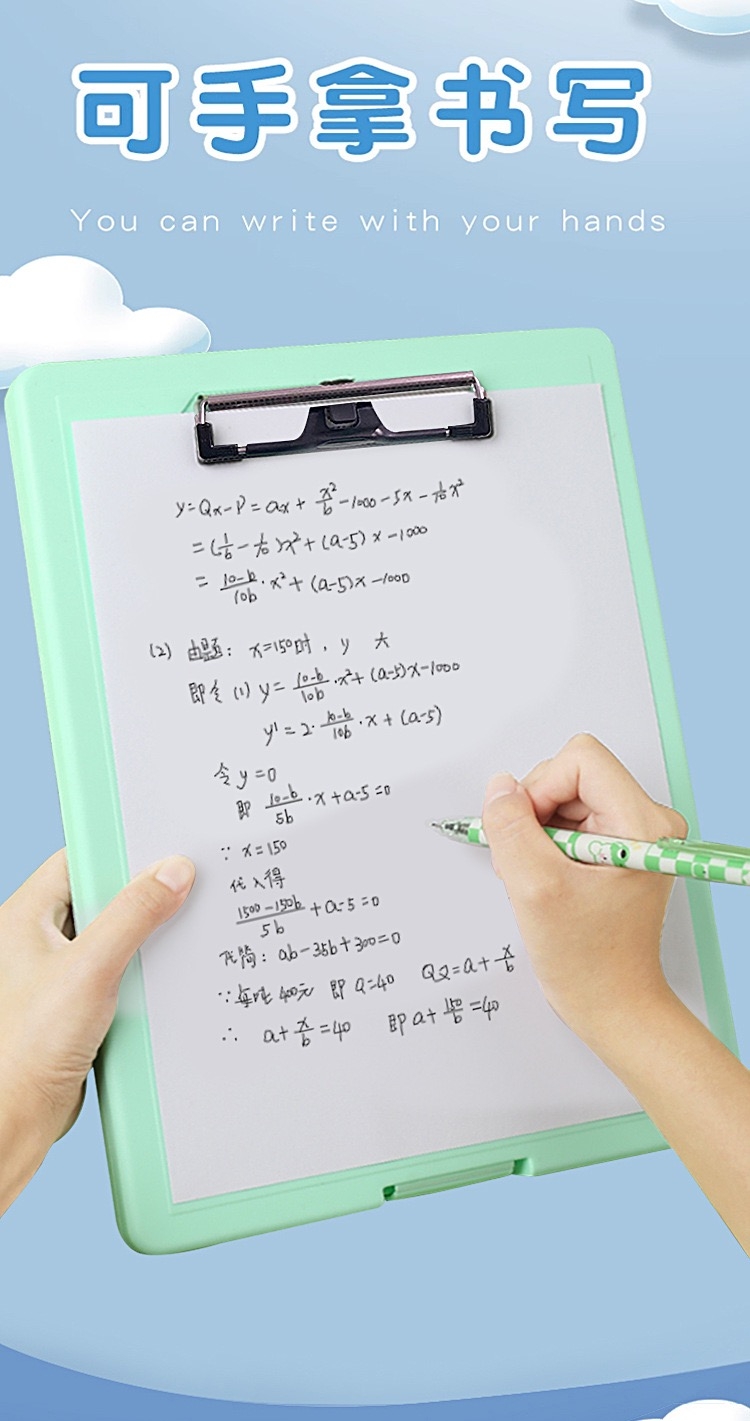 可手拿书写
You can write with your hands
y=Qx-P=ax+x²/b-1000-5x-1/10x²
=(1/b-1/10)x²+(a-5)x-1000
=10-b/10b·x²+(a-5)x-1000
(2) 由题：x=150时，y 大
即令(1)y=10-b/10b·x²+(a-5)x-1000
y'=2·10-b/10b·x+(a-5)
令y=0
即 10-b/5b·x+a-5=0
∵ x=150
代入得
1500-150b/5b+a-5=0
化简：ab-35b+300=0
∵每吨400元 即Q=40 Q又=a+x/b
∴ a+x/b=40 即a+150/b=40